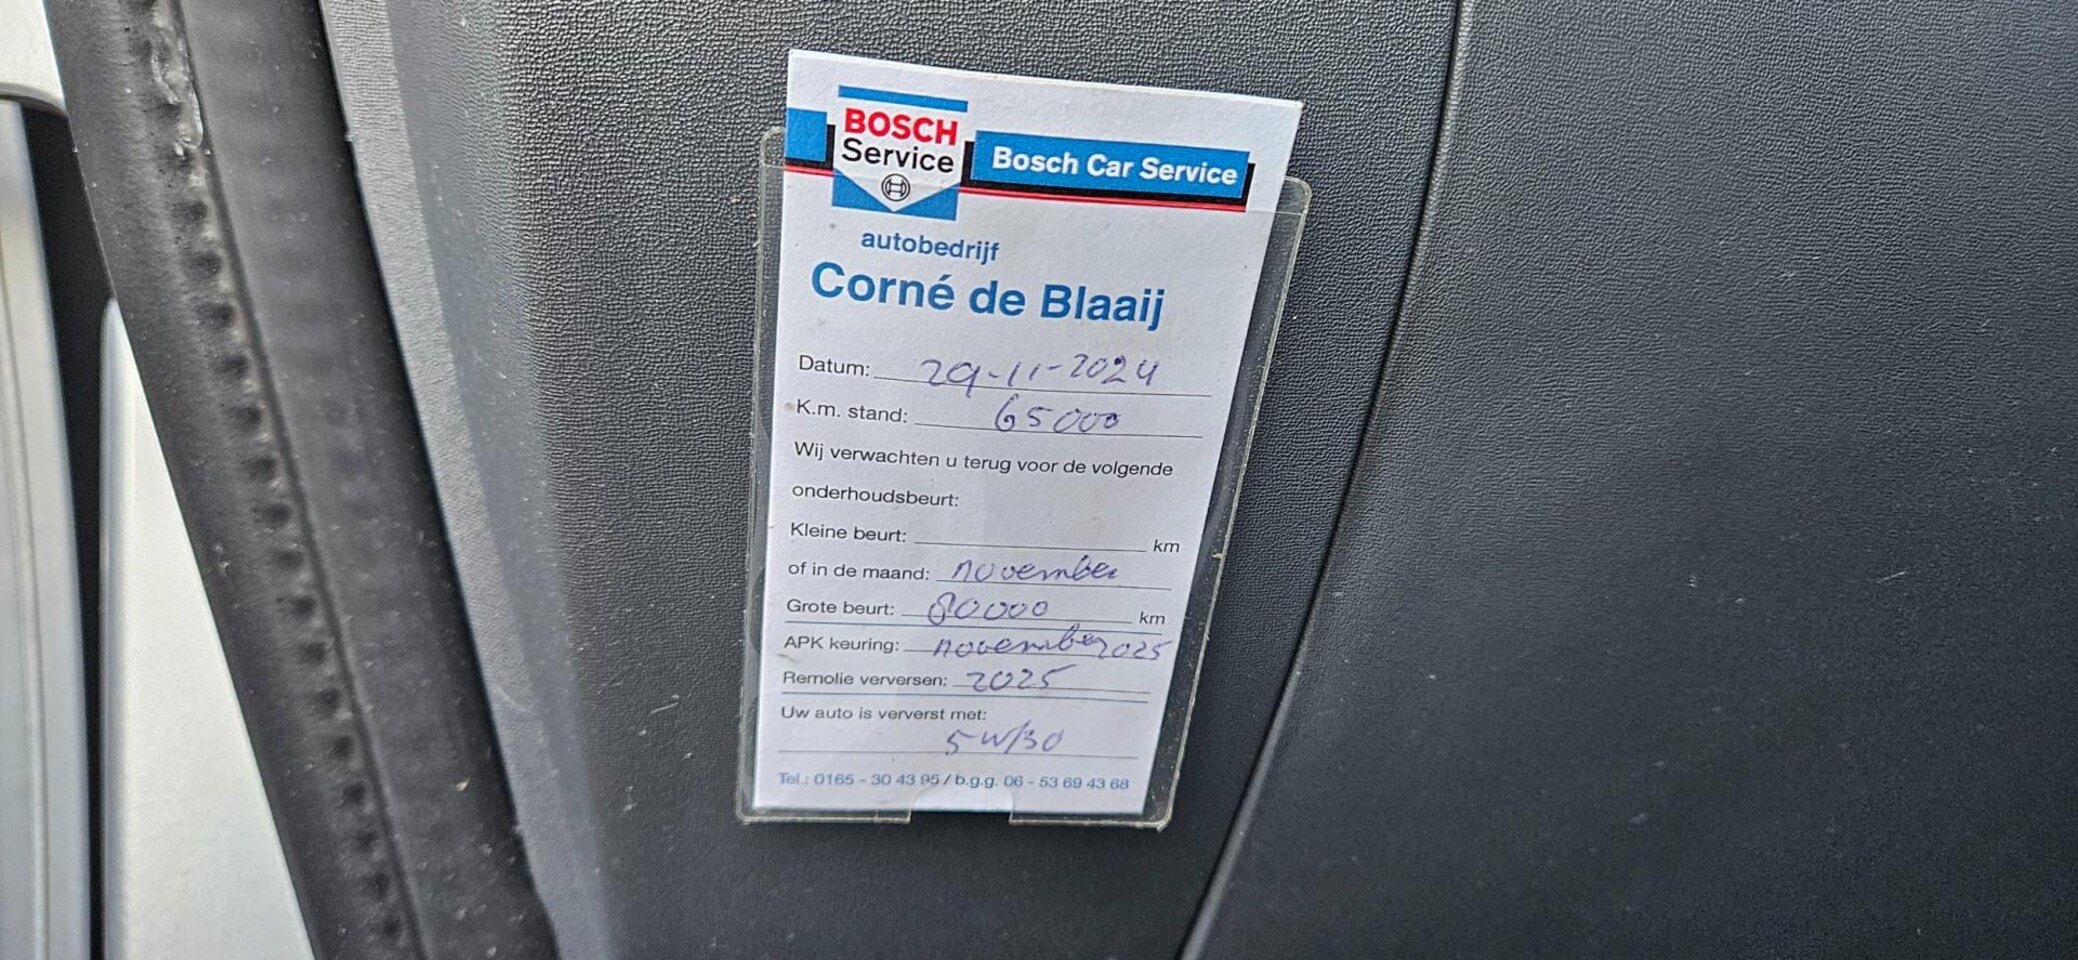 BOSCH
Service
Bosch Car Service
autobedrijf
Corné de Blaaij
Datum: 29-11-2024
K.m. stand: 65000
Wij verwachten u terug voor de volgende
onderhoudsbeurt:
Kleine beurt: km
of in de maand: november
Grote beurt: 80000 km
APK keuring: november 2025
Remolie verversen: 2025
Uw auto is ververst met:
5w/30
Tel.: 0165 - 30 43 95 / b.g.g. 06 - 53 69 43 68